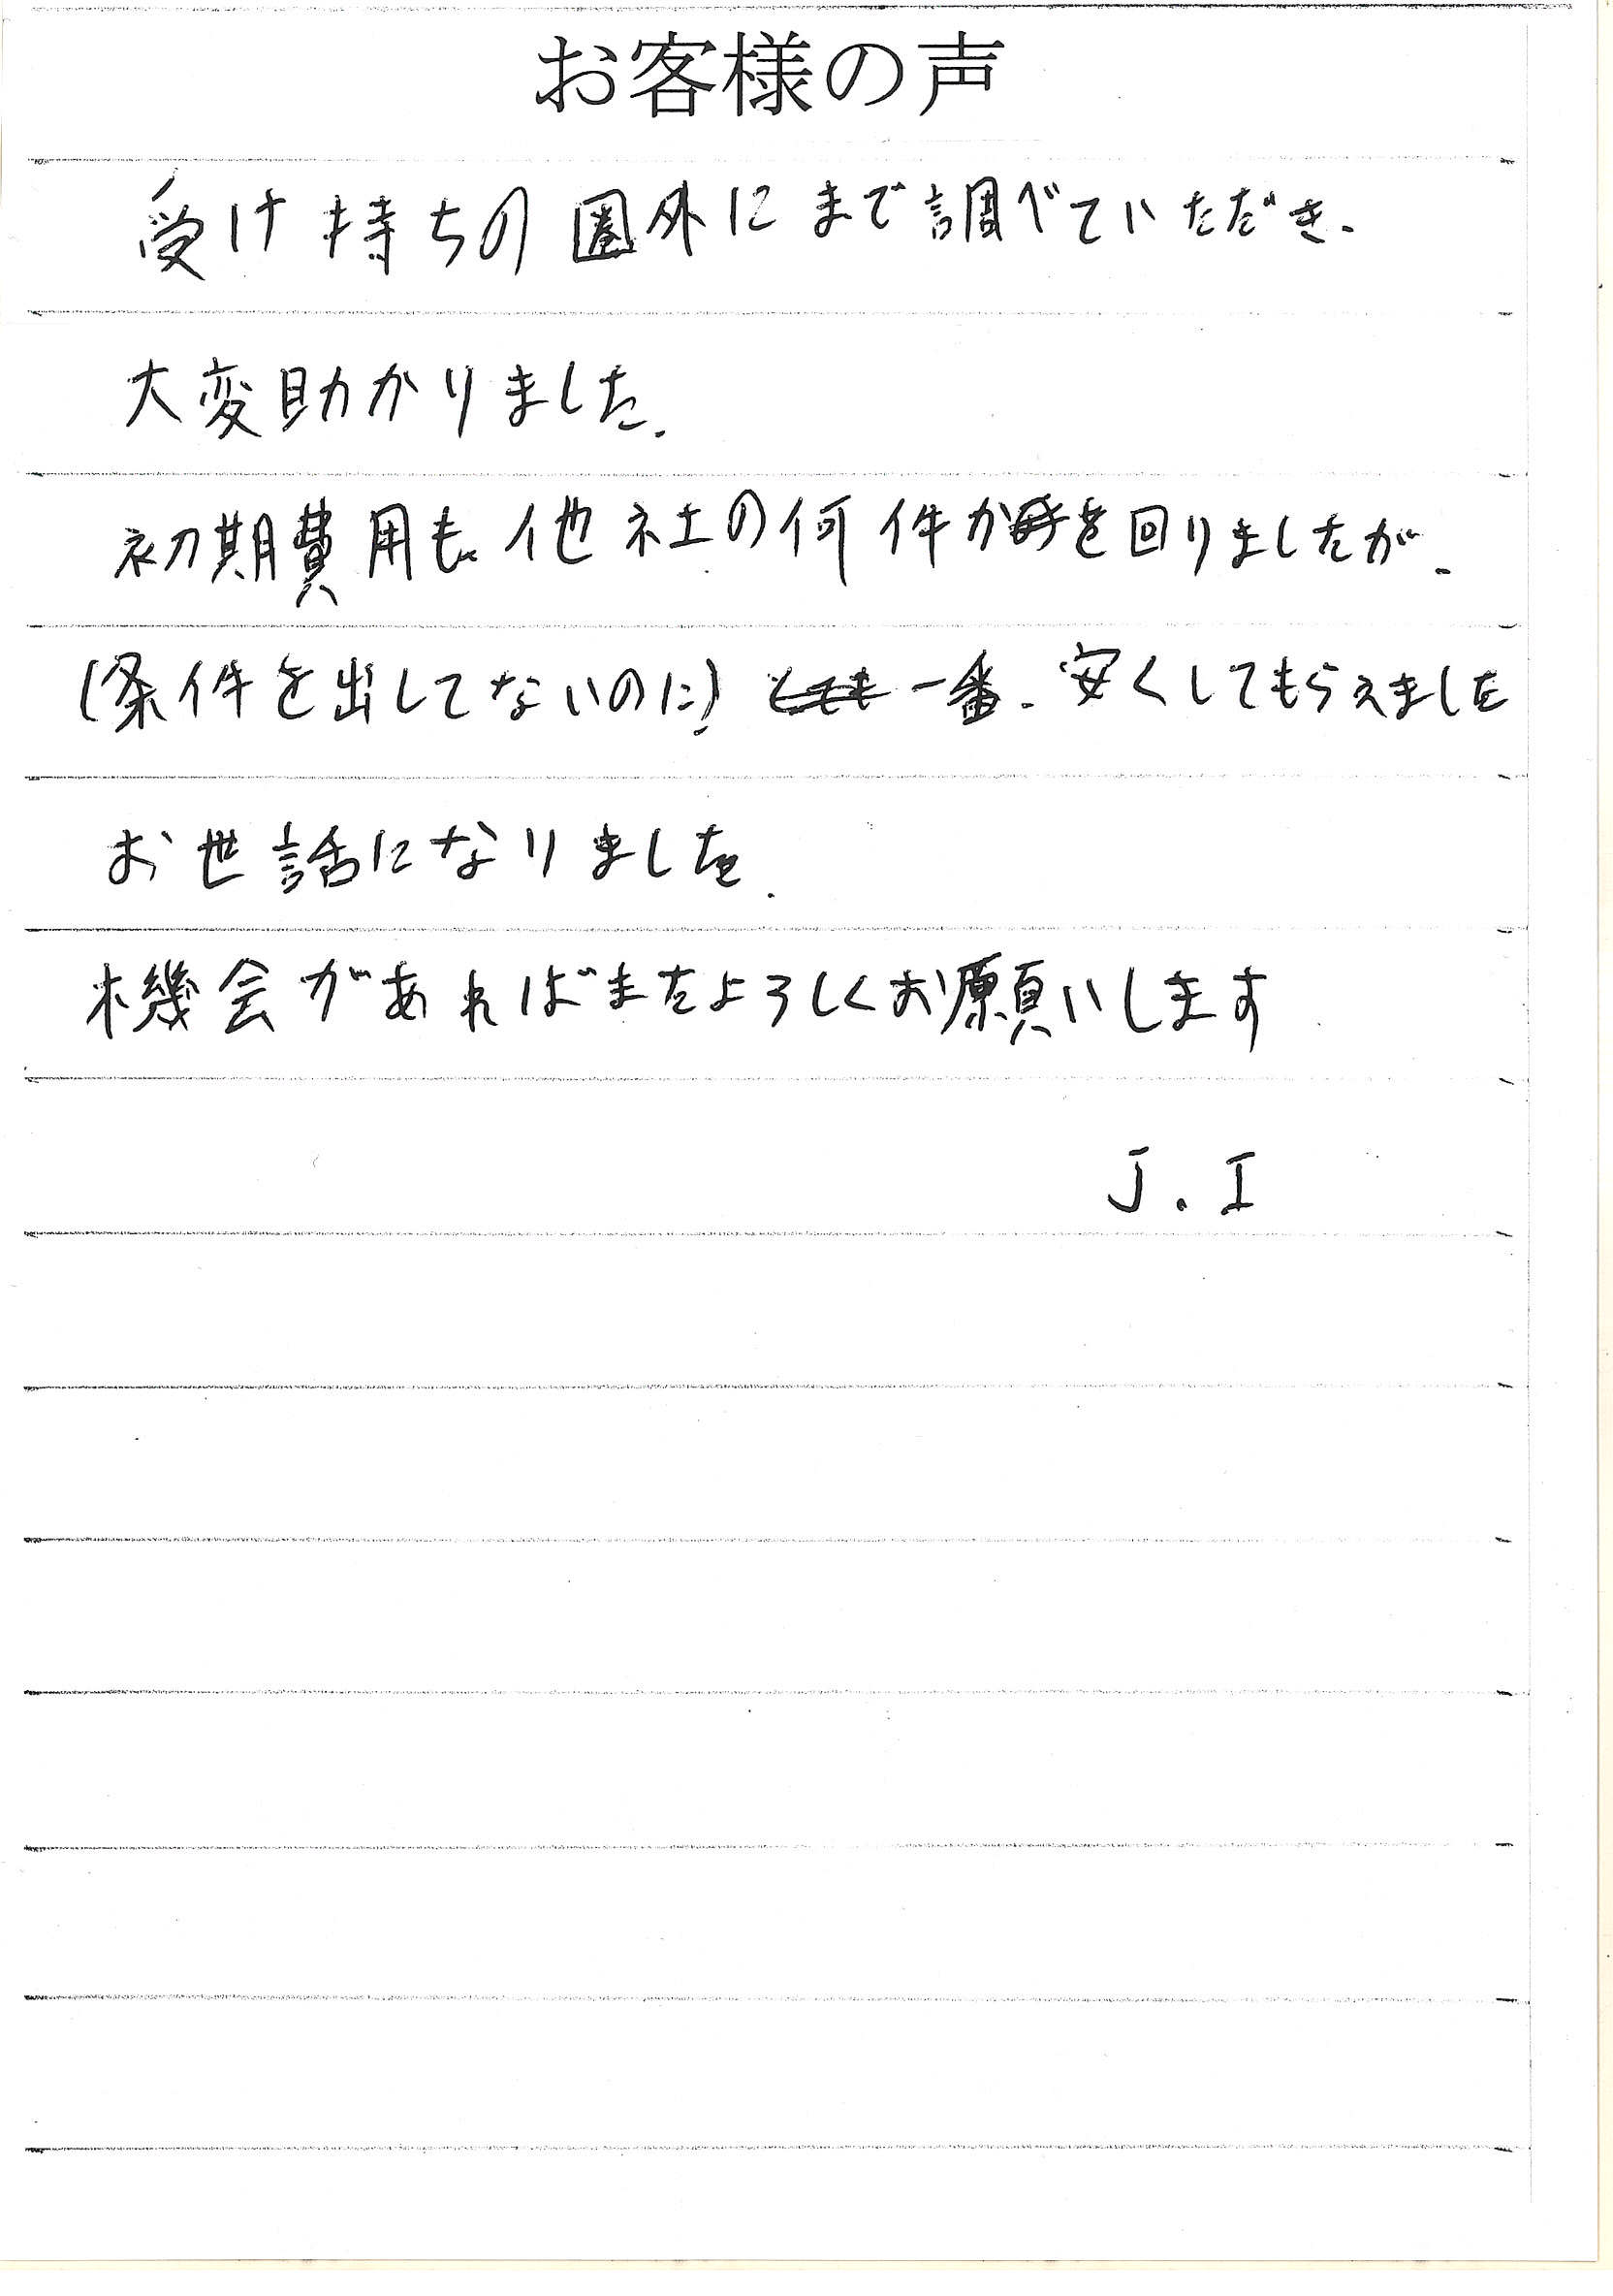 お客様の声
受け持ちの圏外にまで調べていただき、
大変助かりました。
初期費用も、他社の何件かを回りましたが、
(条件を出してないのに) 一番、安くしてもらえました
お世話になりました。
機会があればまたよろしくお願いします
J.I